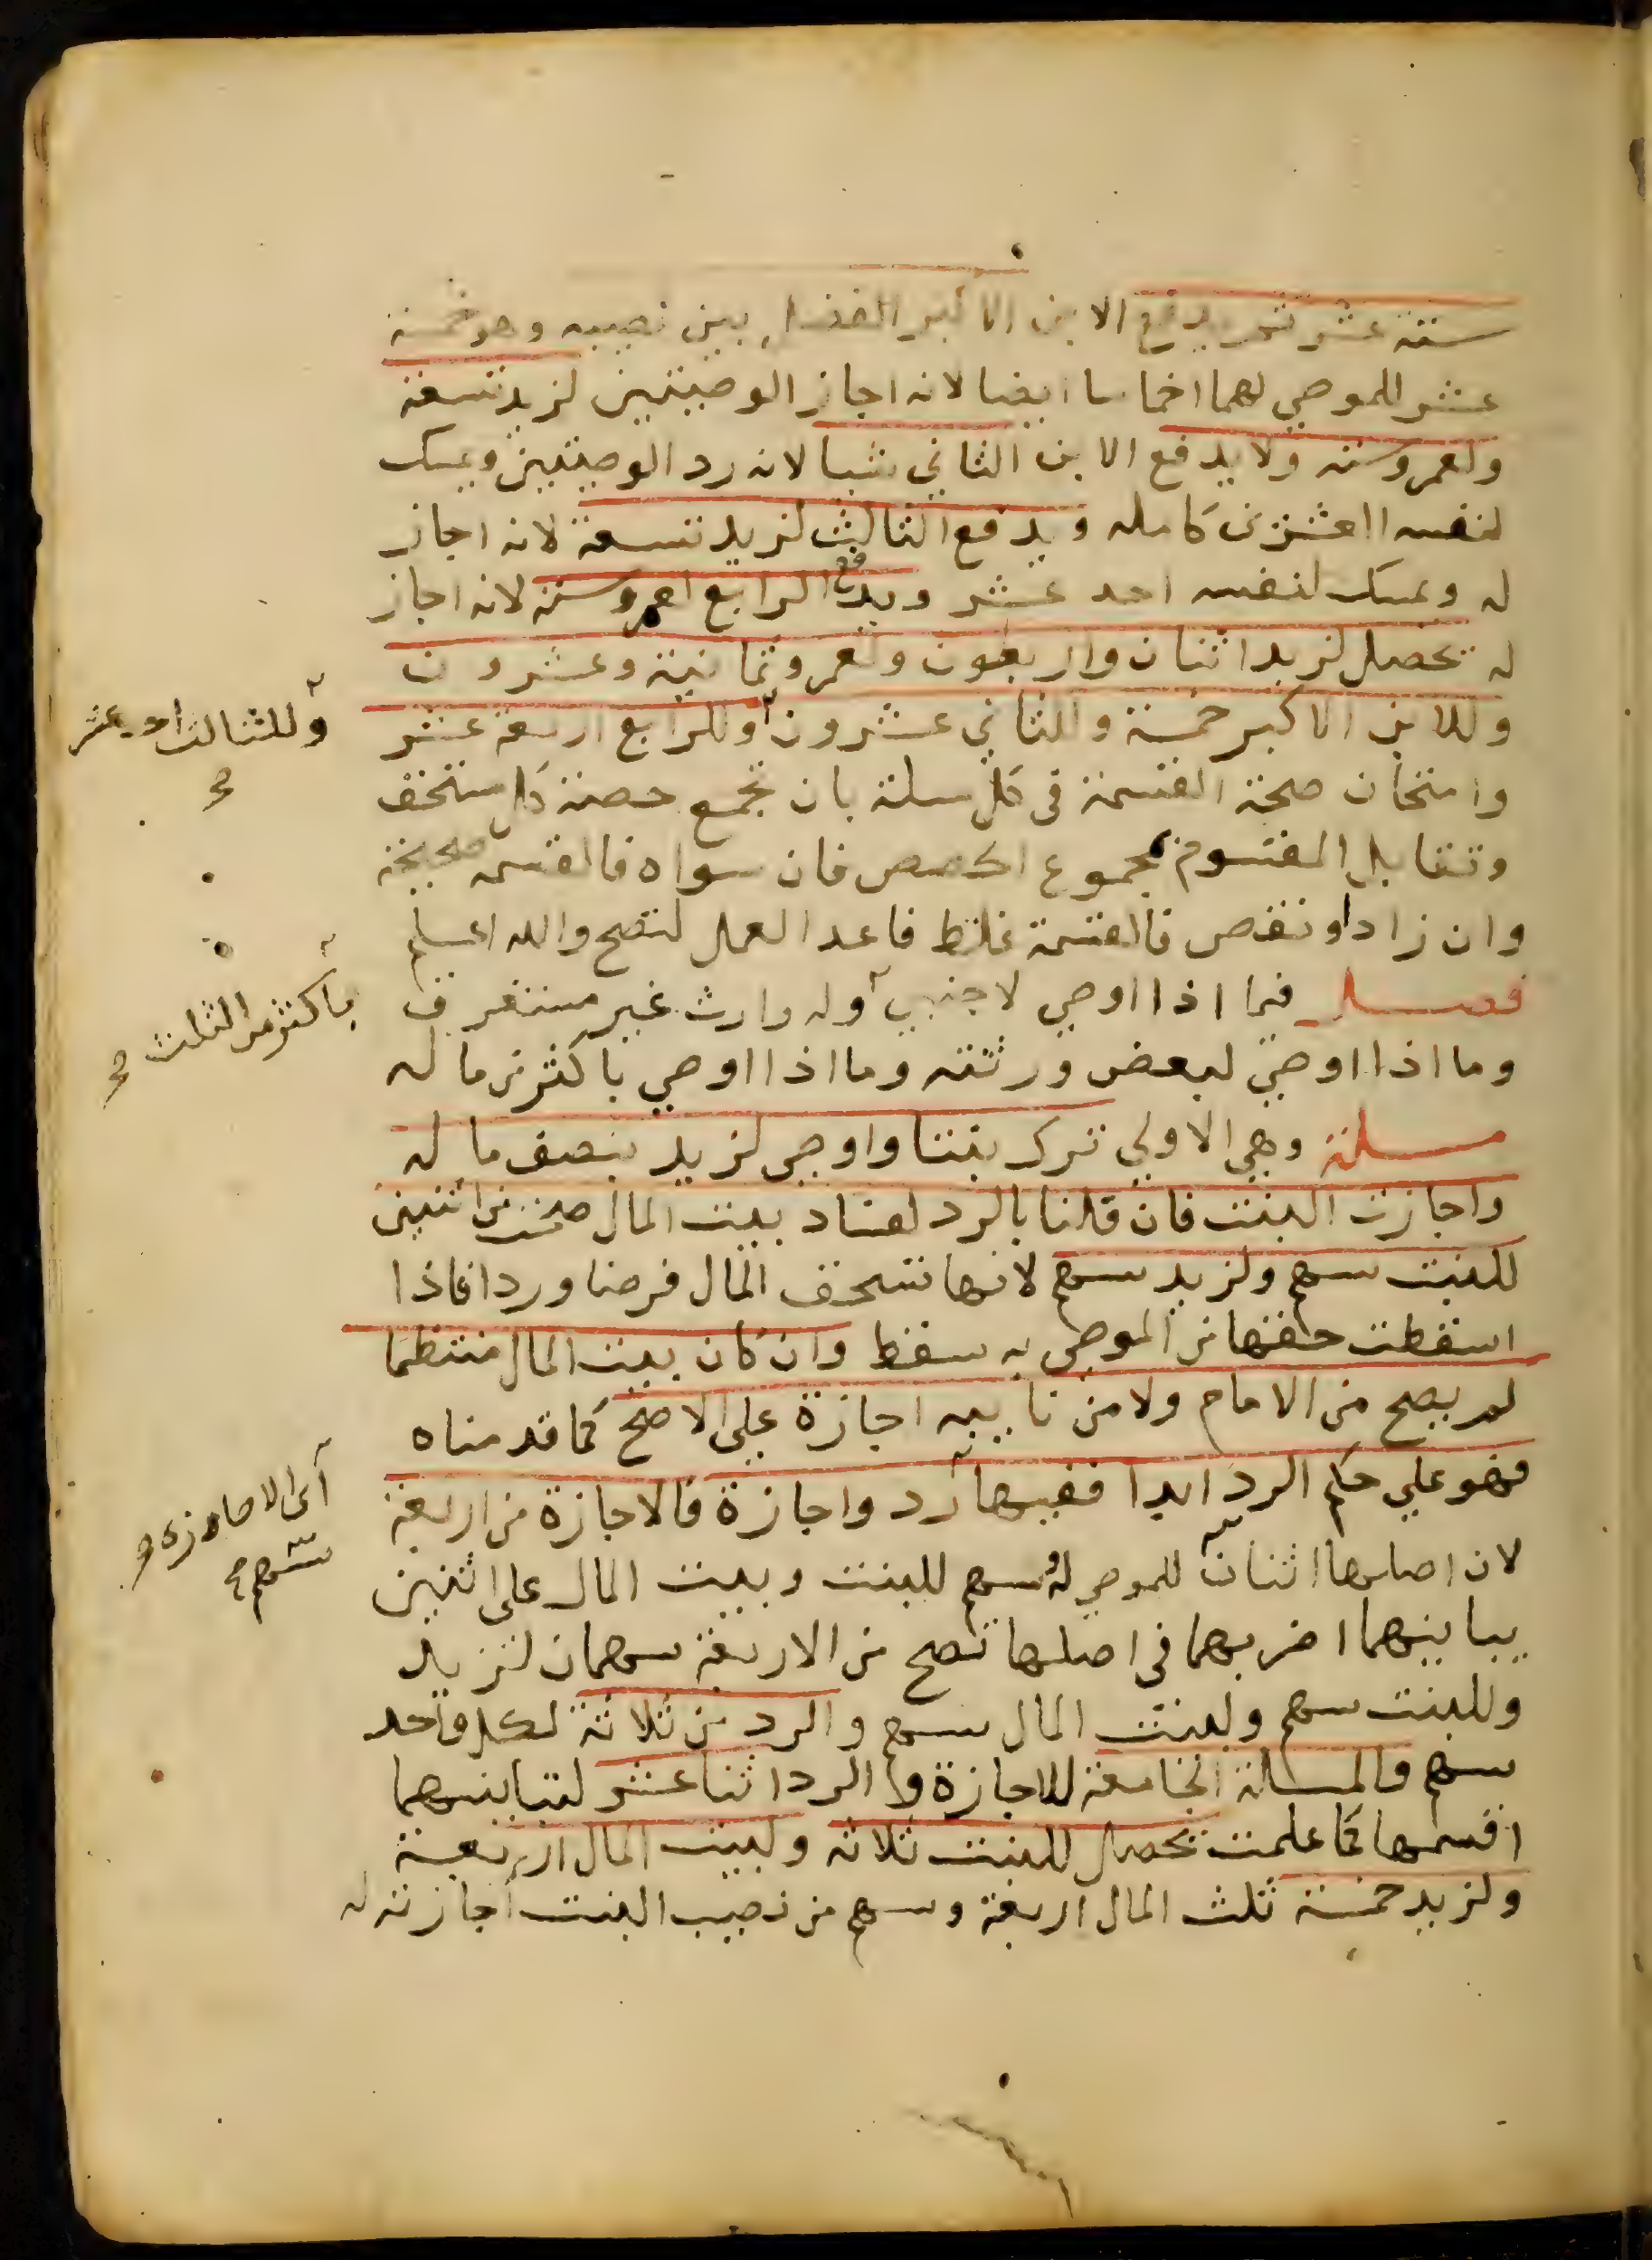 ستة عشر ثم يدفع الابن الاكبر الفضل بين نصيبه وهو خمسة
عشر للموصي لهما اخماسا ايضا لانه اجاز الوصيتين لزيد تسعة
ولعمرو ستة ولا يدفع الابن الثاني شيا لانه رد الوصيتين ويمسك
لنفسه العشرين كاملة ويدفع الثالث لزيد تسعة لانه اجاز
له ويمسك لنفسه احد عشر ويدفع الرابع لعمرو ستة لانه اجاز
له تحصل لزيد اثنان واربعون ولعمرو ثمانية وعشرون
وللابن الاكبر خمسة وللثاني عشرون وللرابع اربعة عشر
وللثالث احد عشر صح
وامتحان صحة القسمة في كل مسلة بان تجمع حصة كل مستحق
وتقابل المقسوم بمجموع الحصص فان سواه فالقسمة صحيحة
وان زاد او نقص فالقسمة غلط فاعد العمل لتصح والله اعلم
فصل فيما اذا اوصي لاجنبي وله وارث غير مستغرق
باكثر من الثلث صح
وما اذا اوصي لبعض ورثته وما اذا اوصي باكثر من ماله
مسلة وهي الاولي ترك بنتا واوصي لزيد بنصف ماله
واجازت البنت فان قلنا بالرد لفساد بيت المال صحت من اثنين
للبنت سهم ولزيد سهم لانها تستحق المال فرضا وردا فاذا
اسقطت حقها من الموصي به سقط وان كان بيت المال منتظما
لم يصح من الامام ولا من نايبه اجازة علي الاصح كما قدمناه
فهو علي حكم الرد ابدا ففيها رد واجازة فالاجازة من اربعة
لان اصلها اثنان للموصي له سهم للبنت وبيت المال علي اثنين
سهم صح
يباينهما اضربهما في اصلها تصح من الاربعة سهمان لزيد
وللبنت سهم ولبيت المال سهم والرد من ثلاثة لكل واحد
سهم فالمسالة الجامعة للاجازة والرد اثنا عشر لتباينهما
اقسمها كما علمت تحصل للبنت ثلاثة ولبيت المال اربعة
ولزيد خمسة ثلث المال اربعة وسهم من نصيب البنت اجازته له